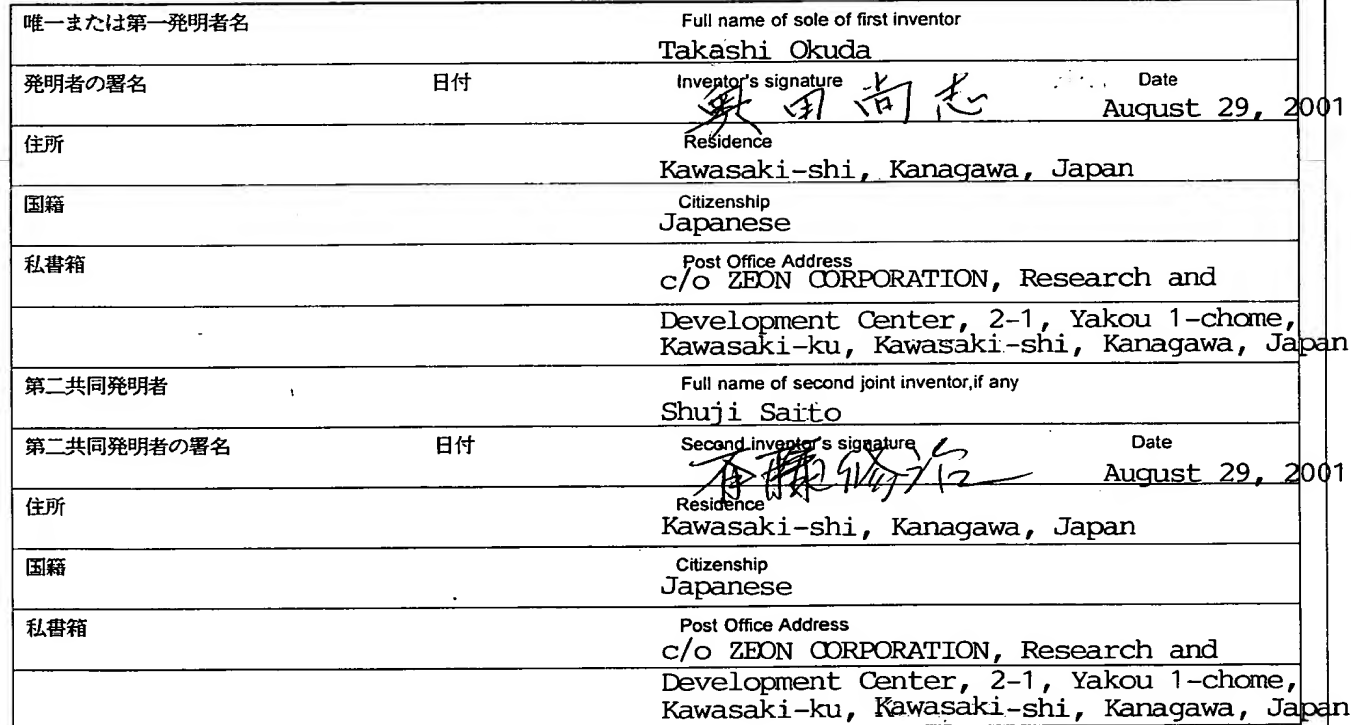 唯一または第一発明者名 Full name of sole of first inventor
Takashi Okuda
発明者の署名 日付 Inventor's signature Date
奥田尚志 August 29, 2001
住所 Residence
Kawasaki-shi, Kanagawa, Japan
国籍 Citizenship
Japanese
私書箱 Post Office Address
c/o ZEON CORPORATION, Research and
Development Center, 2-1, Yakou 1-chome,
Kawasaki-ku, Kawasaki-shi, Kanagawa, Japan
第二共同発明者 Full name of second joint inventor,if any
Shuji Saito
第二共同発明者の署名 日付 Second inventor's signature Date
斉藤修治 August 29, 2001
住所 Residence
Kawasaki-shi, Kanagawa, Japan
国籍 Citizenship
Japanese
私書箱 Post Office Address
c/o ZEON CORPORATION, Research and
Development Center, 2-1, Yakou 1-chome,
Kawasaki-ku, Kawasaki-shi, Kanagawa, Japan